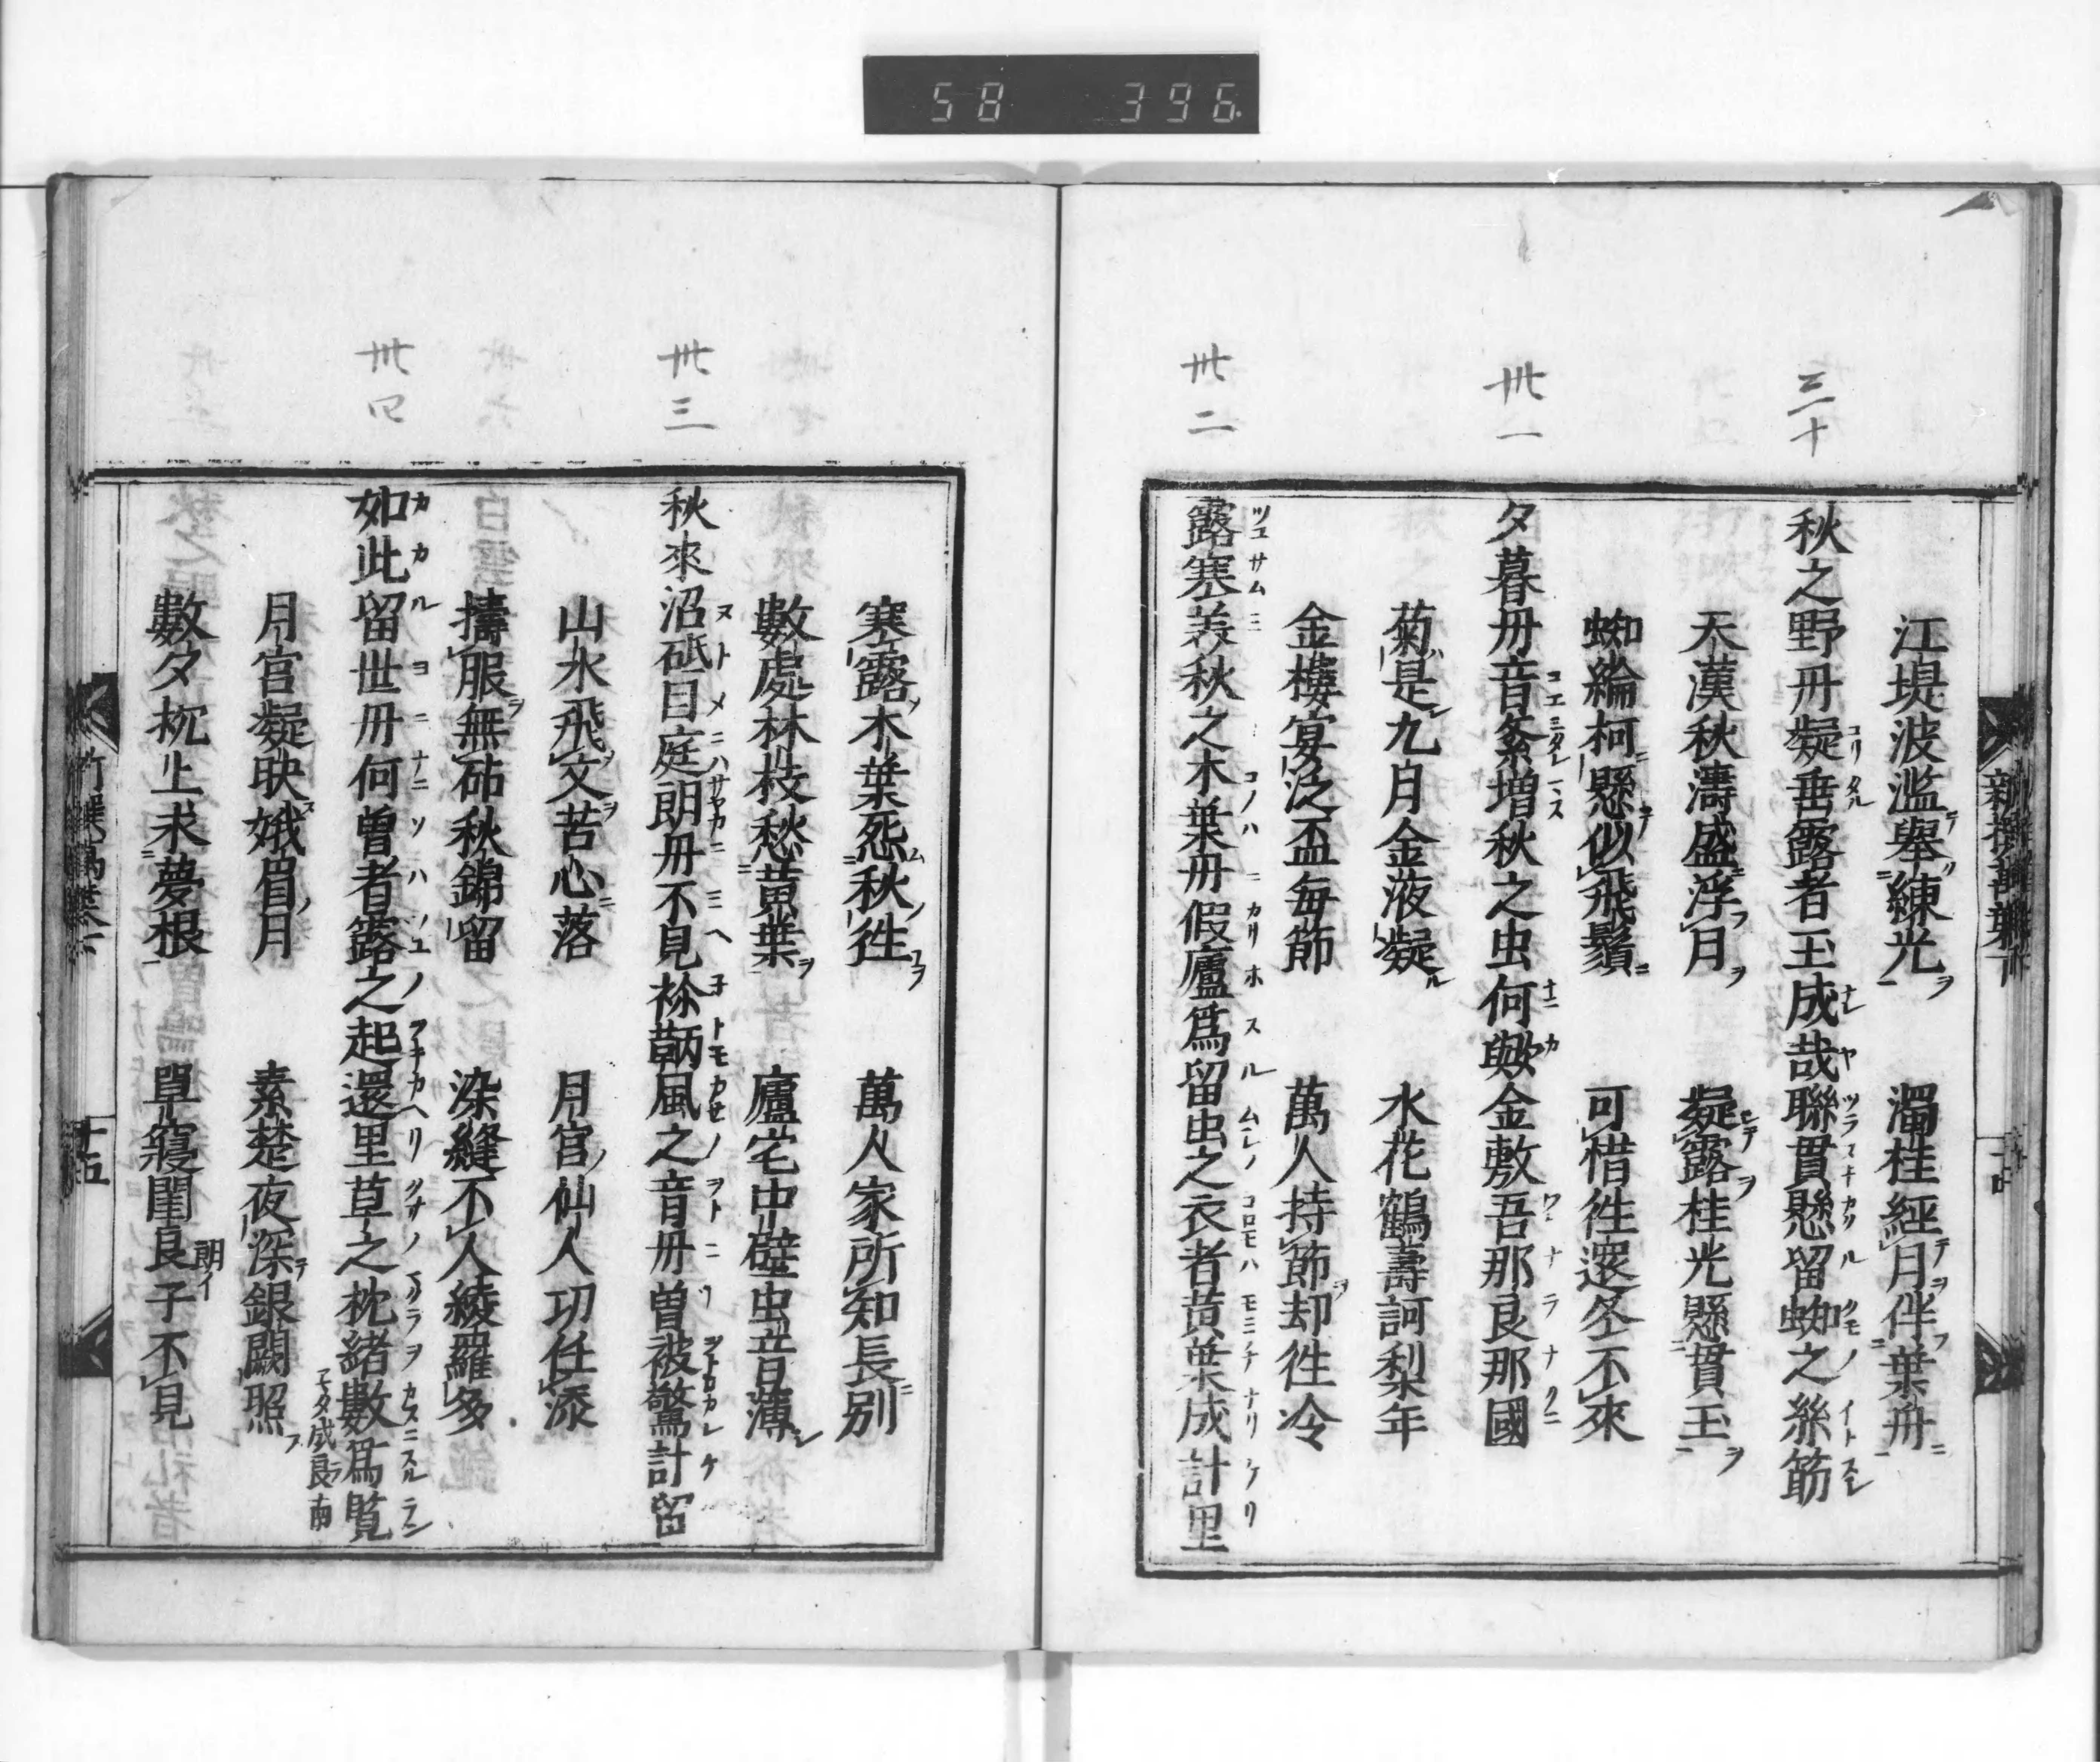 58 396
江堤波濫擧練光 濁桂經月伴葉舟
三十
秋之野丹凝垂露者玉成哉聯貫懸留蜘之絲筋
天漢秋濤盛浮月 凝露桂光懸貫玉
蜘綸柯懸似飛鬚 可惜徃還冬不來
卅一
夕暮丹音紊增秋之虫何歟金敷吾那良那國
菊是九月金液凝 水花鶴壽訶梨年
金樓宴泛盃每節 萬人持節却徃冷
卅二
露寒美秋之木葉丹假廬爲留虫之衣者黃葉成計里
寒露木葉怨秋徃 萬人家所知長別
數處林枝愁黃葉 廬宅中壁虫音薄
卅三
秋來沼砥目庭朗丹不見袮鞆風之音丹曽被驚計留
山水飛文苦心落 月宮仙人功任添
擣服無砧秋錦留 染縫不人綾羅多
卅四
如此留世丹何曽者露之起還里草之枕緒數爲覧
月宮凝映娥眉月 素楚夜深銀闕照
數夕枕上求夢根 單寢閨良子不見
朗イ
十五